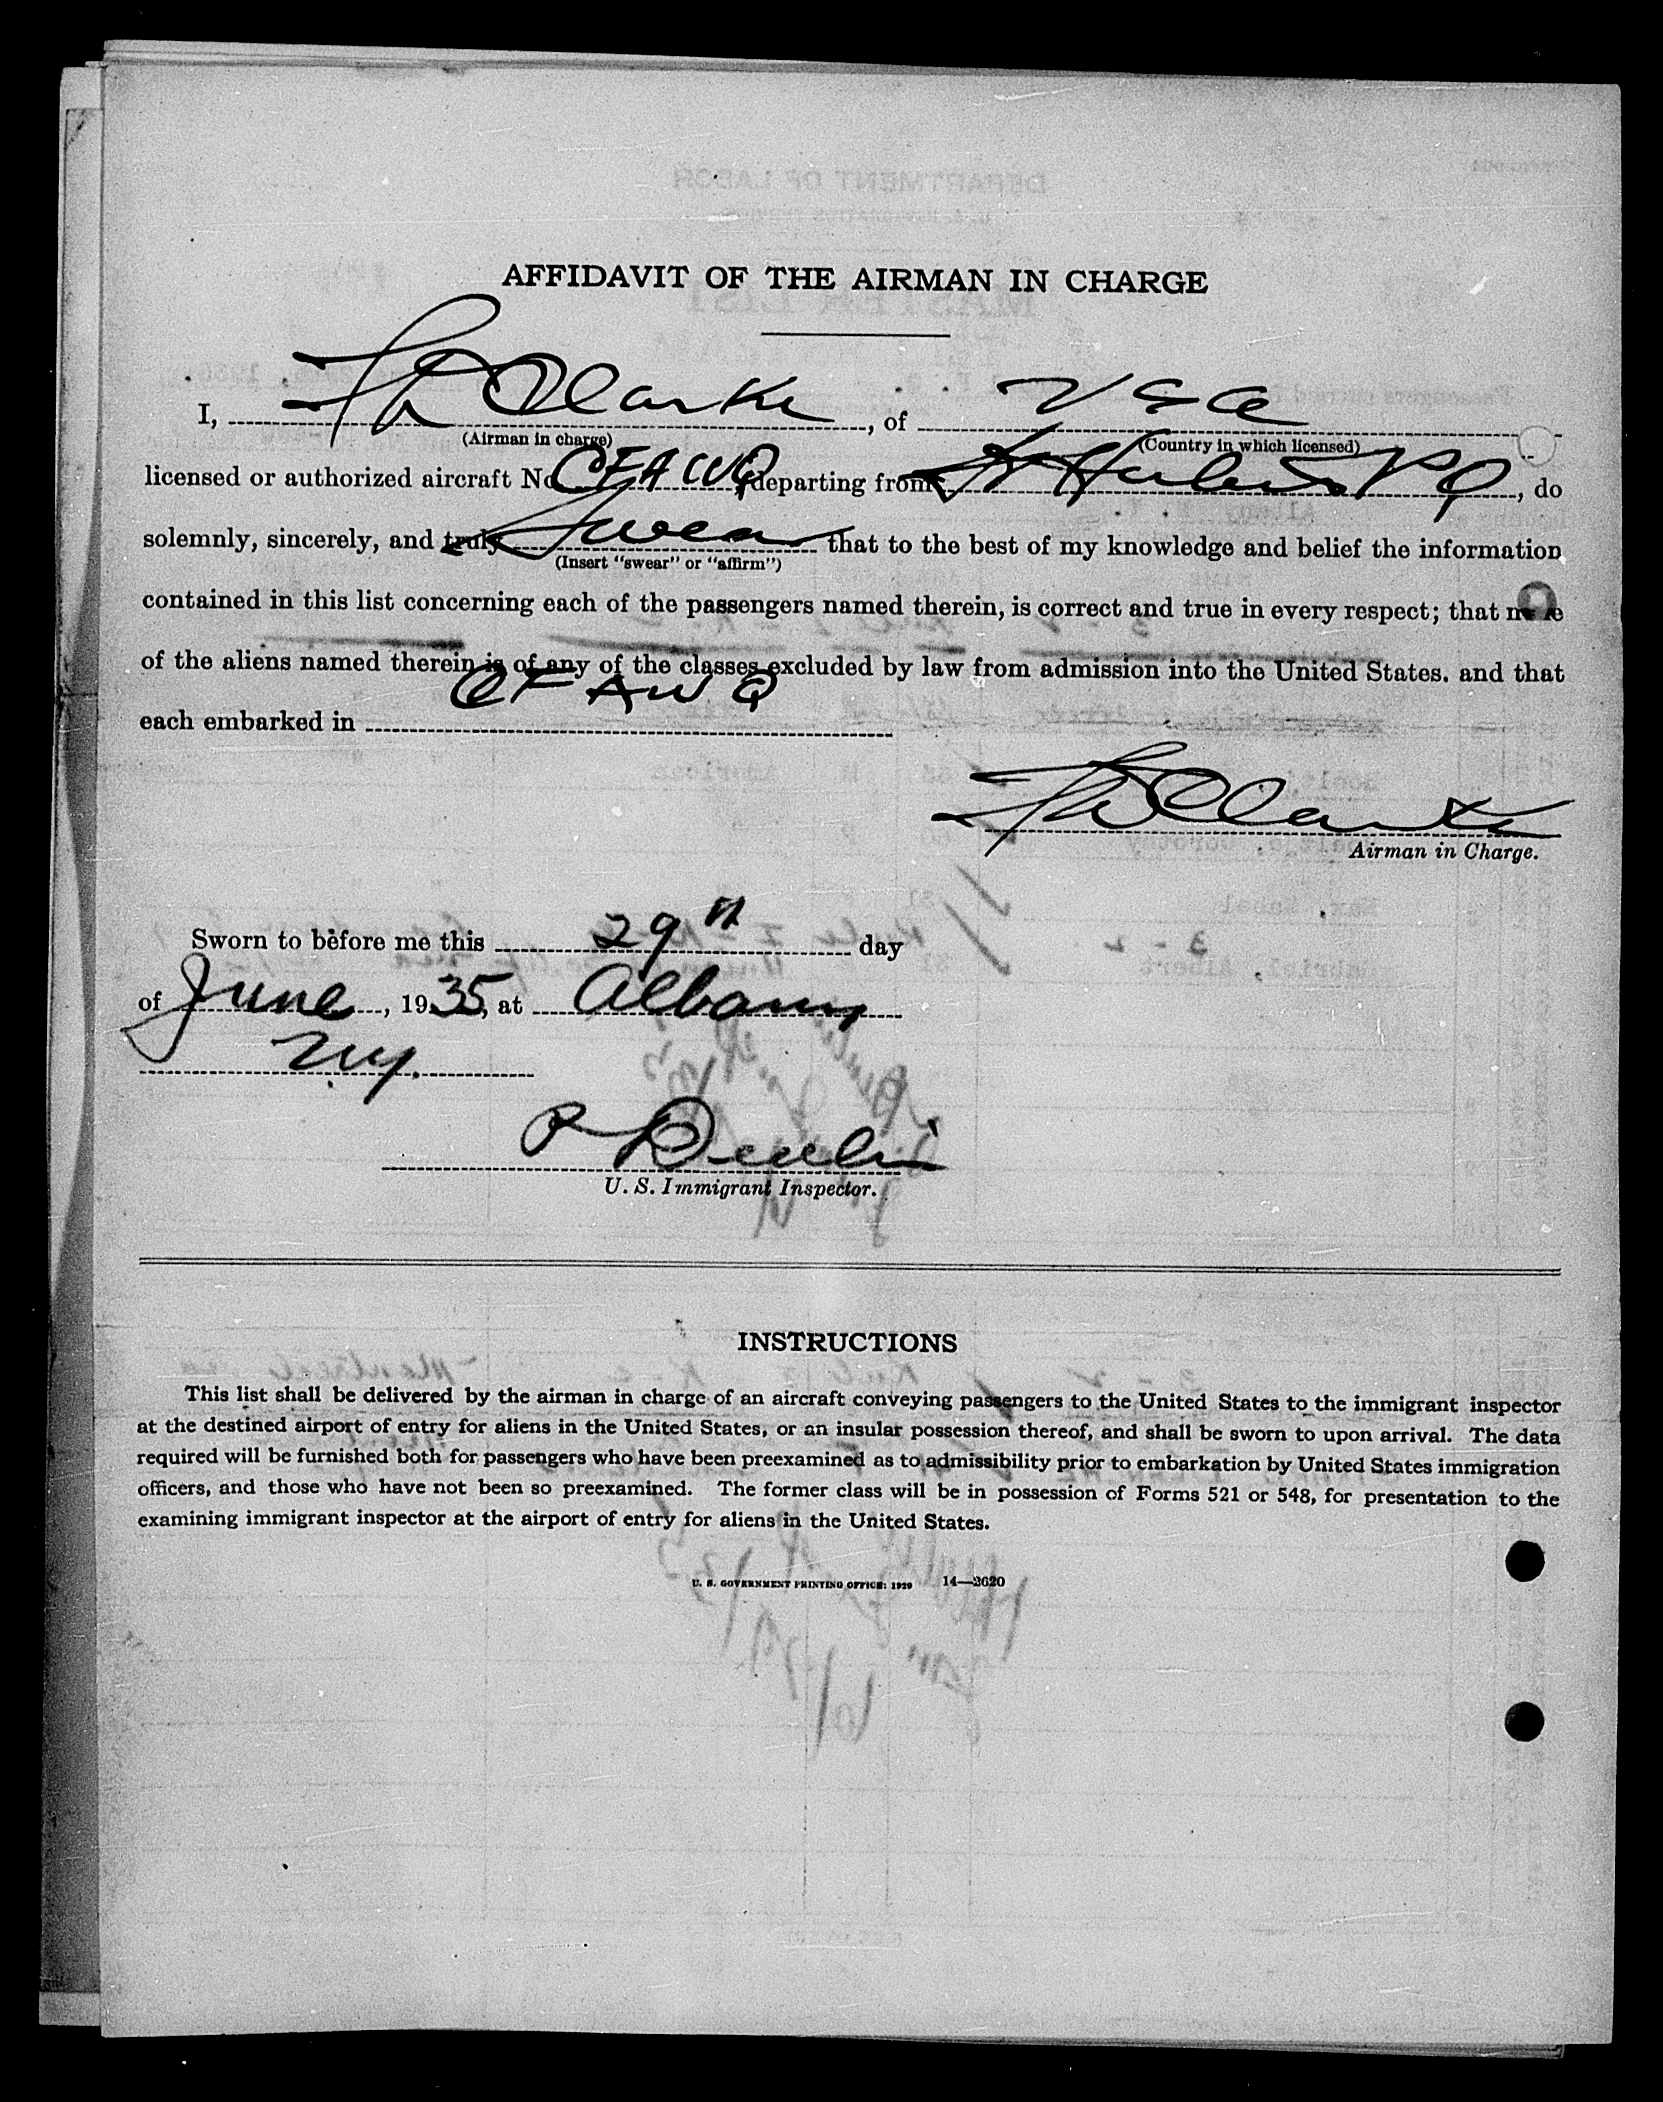 AFFIDAVIT OF THE AIRMAN IN CHARGE
I, Clarke, of USA
(Airman in charge) (Country in which licensed)
licensed or authorized aircraft No. CFAWQ, departing from St Hubert PQ, do
solemnly, sincerely, and truly Swear that to the best of my knowledge and belief the information
(Insert "swear" or "affirm")
contained in this list concerning each of the passengers named therein, is correct and true in every respect; that none
of the aliens named therein is of any of the classes excluded by law from admission into the United States. and that
each embarked in CFAWQ
Clarke
Airman in Charge.
Sworn to before me this 29th day
of June, 1935, at Albany
NY.
P Devlin
U. S. Immigrant Inspector.
INSTRUCTIONS
This list shall be delivered by the airman in charge of an aircraft conveying passengers to the United States to the immigrant inspector
at the destined airport of entry for aliens in the United States, or an insular possession thereof, and shall be sworn to upon arrival. The data
required will be furnished both for passengers who have been preexamined as to admissibility prior to embarkation by United States immigration
officers, and those who have not been so preexamined. The former class will be in possession of Forms 521 or 548, for presentation to the
examining immigrant inspector at the airport of entry for aliens in the United States.
U. S. GOVERNMENT PRINTING OFFICE: 1929 14—3620